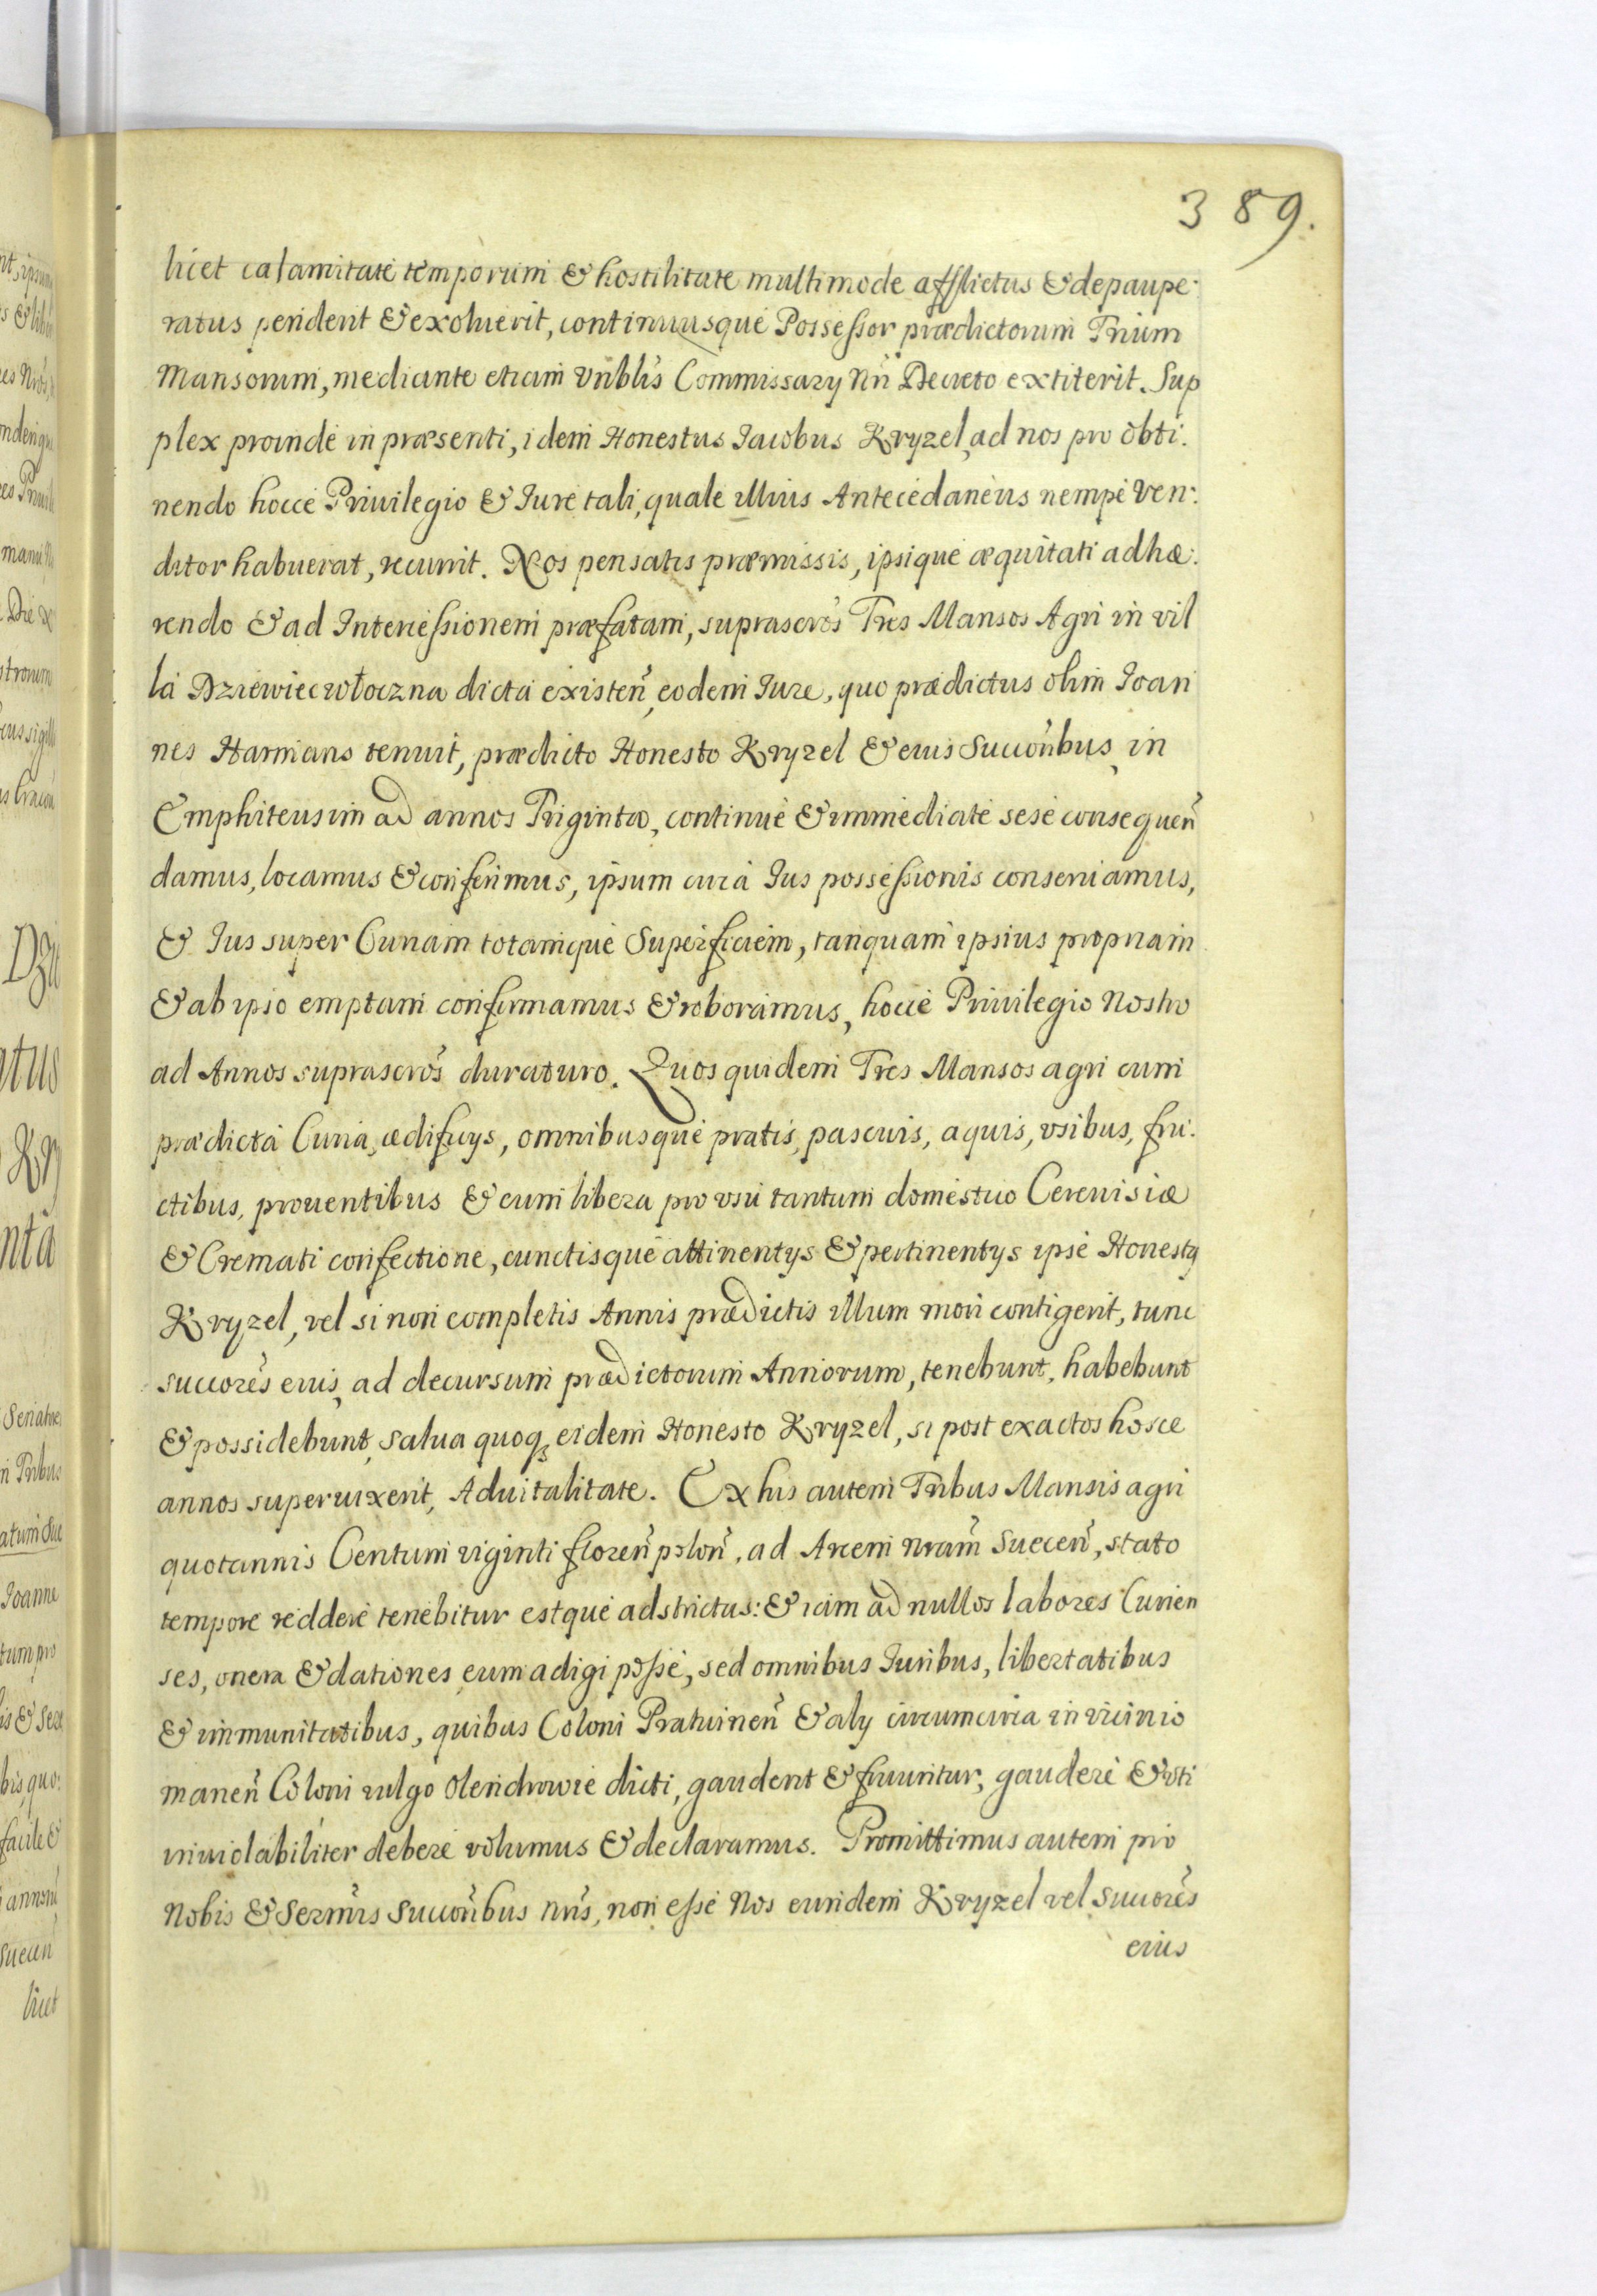 389.
licet calamitate temporum & hostilitate multimode afflictus & depaupe:
ratus penderit & exoluerit, continuusque Possessor prædictorum Trium
Mansorum, mediante etiam Vriblis Commissarÿ Nri Decreto extiterit. Sup
plex proinde in præsenti, idem Honestus Iacobus Kryzel, ad nos pro obti:
nendo hocce Priuilegio & Iure tali, quale illius Antecedaneus nempe Ven:
ditor habuerat, recurrit. Nos pensatis præmissis, ipsique æquitati adhæ:
rendo & ad Intercessionem præfatam, suprascros Tres Mansos Agri in vil
la Dziewiecwłoczna dicta existen, eodem Iure, quo prædictus olim Ioan
nes Harmans tenuit, prædicto Honesto Kryzel & eius Succoribus, in
Emphiteusim ad annos Triginta, continue & immediate sese consequen
damus, locamus & conferimus, ipsum circa Ius possessionis conseruamus,
& Ius super Curiam totamque Superficiem, tanquam ipsius propriam
& ab ipso emptam confirmamus & roboramus, hocce Priuilegio Nostro
ad Annos suprascros duraturo. Quos quidem Tres Mansos agri cum
prædicta Curia, ædificÿs, omnibusque pratis, pascuis, aquis, vsibus, fru:
ctibus, prouentibus & cum libera pro vsu tantum domestico Cereuisiæ
& Cremati confectione, cunctisque attinentÿs & pertinentÿs ipse Honestq
Kryzel, vel si non completis Annis prædictis illum mori contigerit, tunc
succores eius, ad decursum prædictorum Annorum, tenebunt, habebunt
& possidebunt, salua quoq eidem Honesto Kryzel, si post exactos hosce
annos superuixerit, Aduitalitate. Ex his autem Tribus Mansis agri
quotannis Centum viginti floren polon, ad Arcem nram Suecen, stato
tempore reddere tenebitur estque adstrictus: & iam ad nullos labores Curien
ses, onera & dationes eum adigi posse, sed omnibus Iuribus, libertatibus
& immunitatibus, quibus Coloni Pratuinen & alÿ circumcirca in vicinio
manen Coloni vulgo Olendrowie dicti, gaudent & fruuntur, gaudere & vti
inuiolabiliter debere volumus & declaramus. Promittimus autem pro
Nobis & Sermis Succoribus nris, non esse Nos eundem Kryzel vel succores
eius